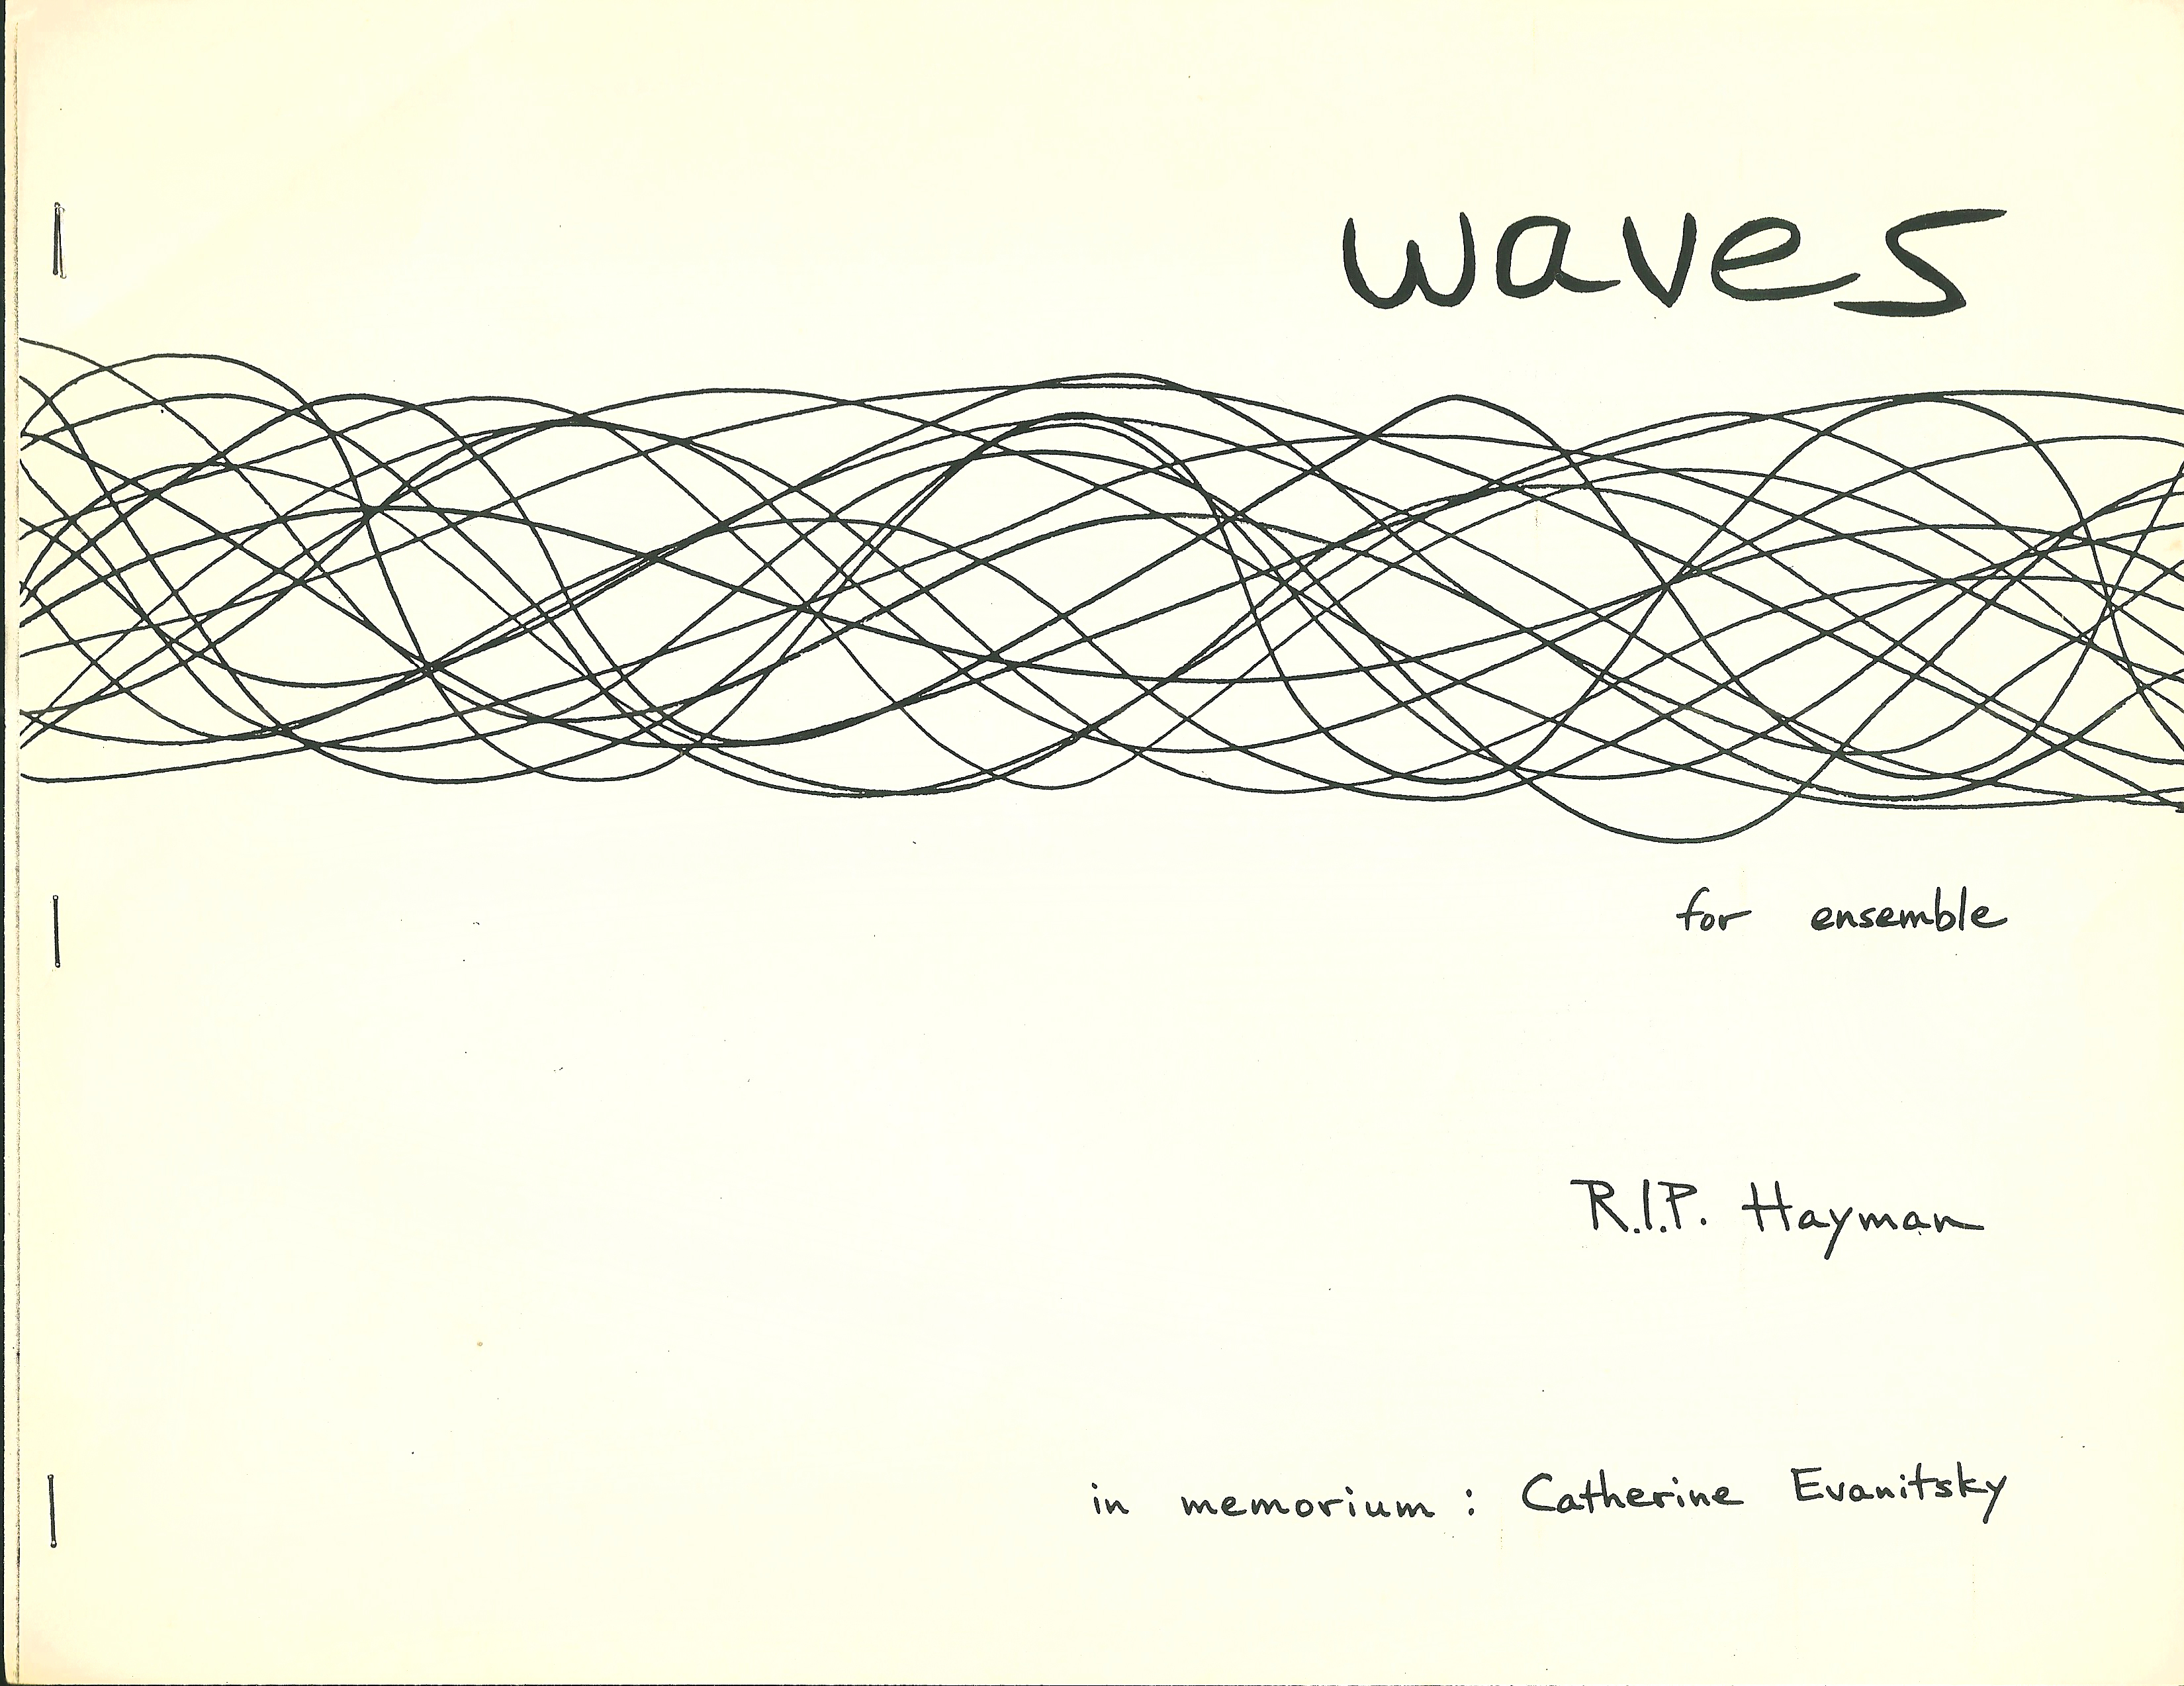 waves
for ensemble
R.I.P. Hayman
in memorium : Catherine Evanitsky